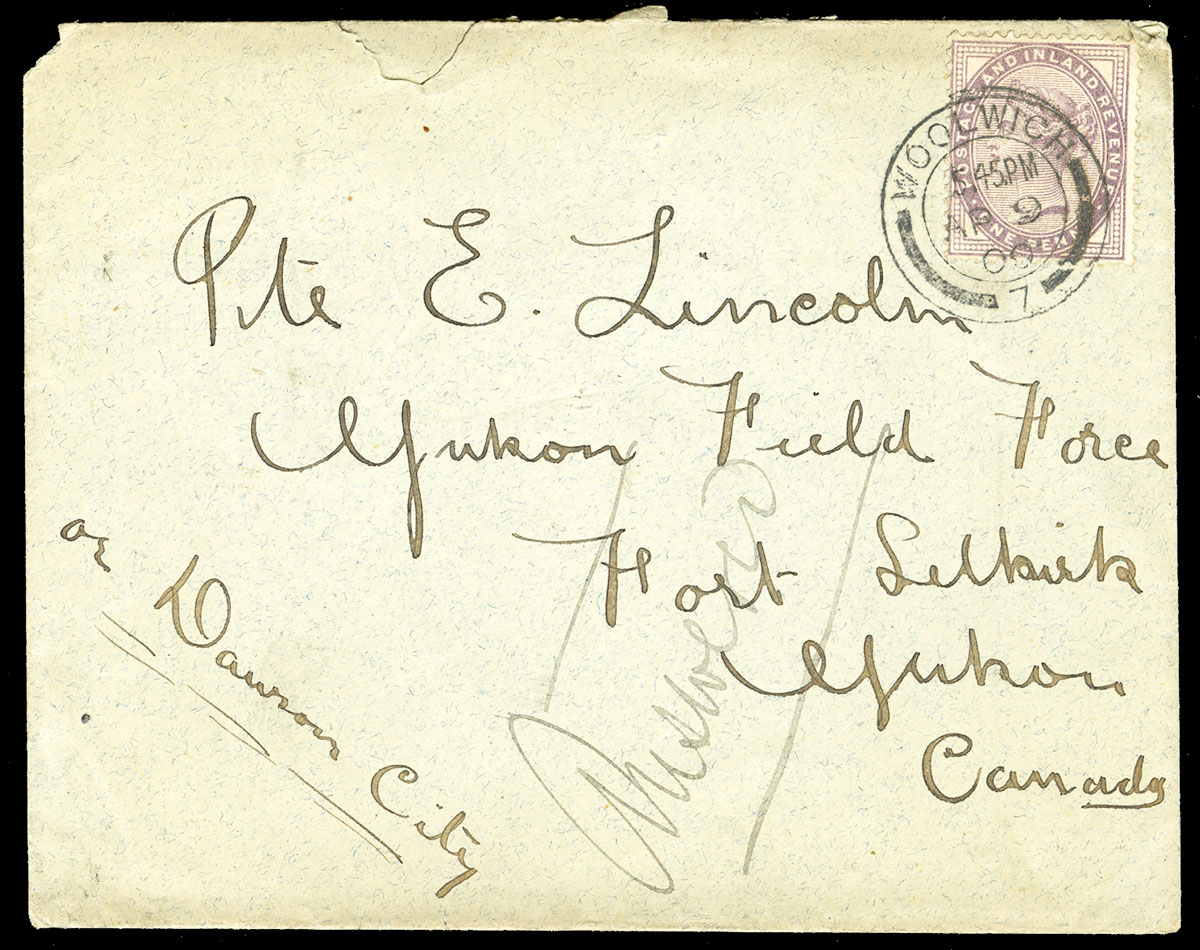 POSTAGE AND INLAND REVENUE
ONE PENNY
WOOLWICH
5.45PM
AP 9
00
7
Pte E. Lincoln
Yukon Field Force
Fort Selkirk
Yukon
Canada
or Dawson City
Answered